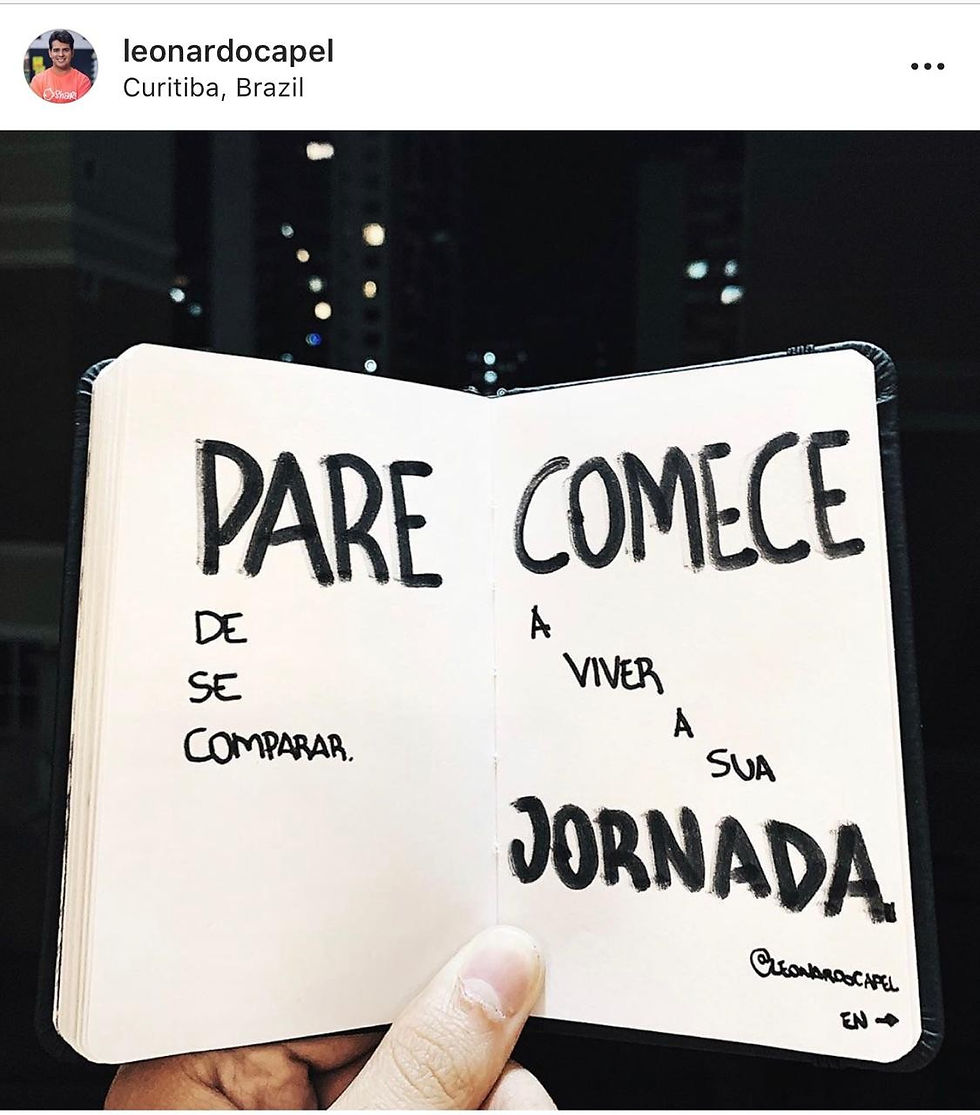 leonardocapel
Curitiba, Brazil
PARE
DE
SE
COMPARAR.
COMECE
A
VIVER
A
SUA
JORNADA.
@LEONARDOCAPEL
EN →